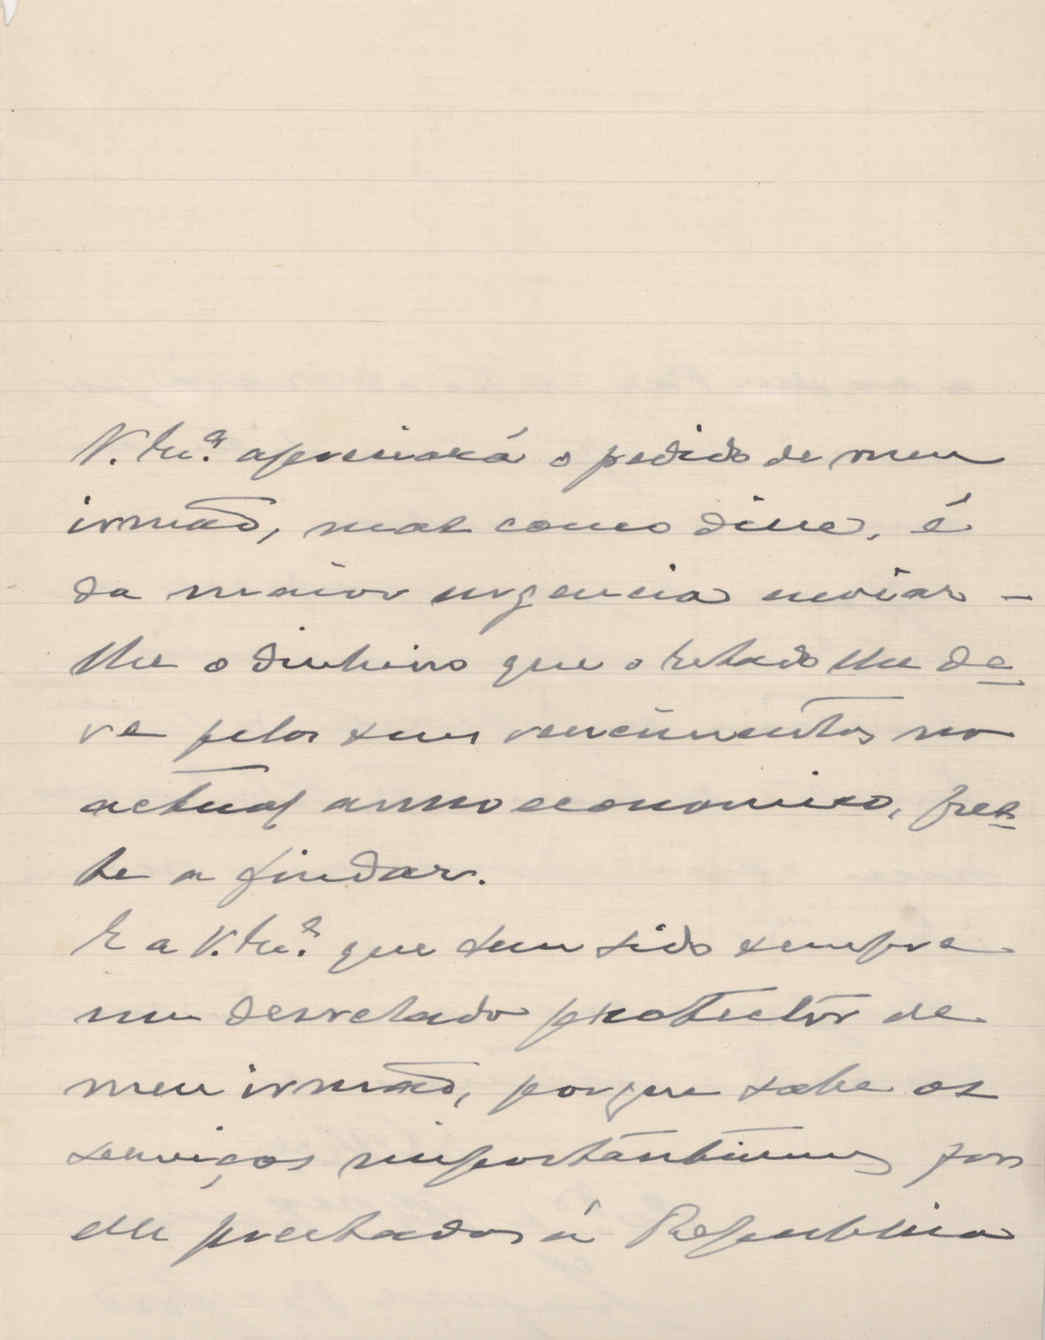 V. Ex.ª apreciará o pedido de meu
irmão, mas como disse, é
da maior urgencia enviar-
lhe o dinheiro que o Estado lhe de
ve pelos seus vencimentos no
actual anno economico, pres
te a findar.
E a V. Ex.ª que tem sido sempre
um desvelado protector de
meu irmão, porque sabe os
serviços importantissimos por
elle prestados á Republica